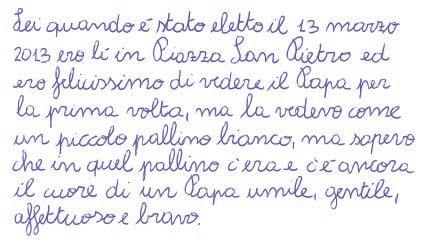 Lei quando è stato eletto il 13 marzo
2013 ero lì in Piazza San Pietro ed
ero felicissimo di vedere il Papa per
la prima volta, ma la vedevo come
un piccolo pallino bianco, ma sapevo
che in quel pallino c'era e c'è ancora
il cuore di un Papa umile, gentile,
affettuoso e bravo.